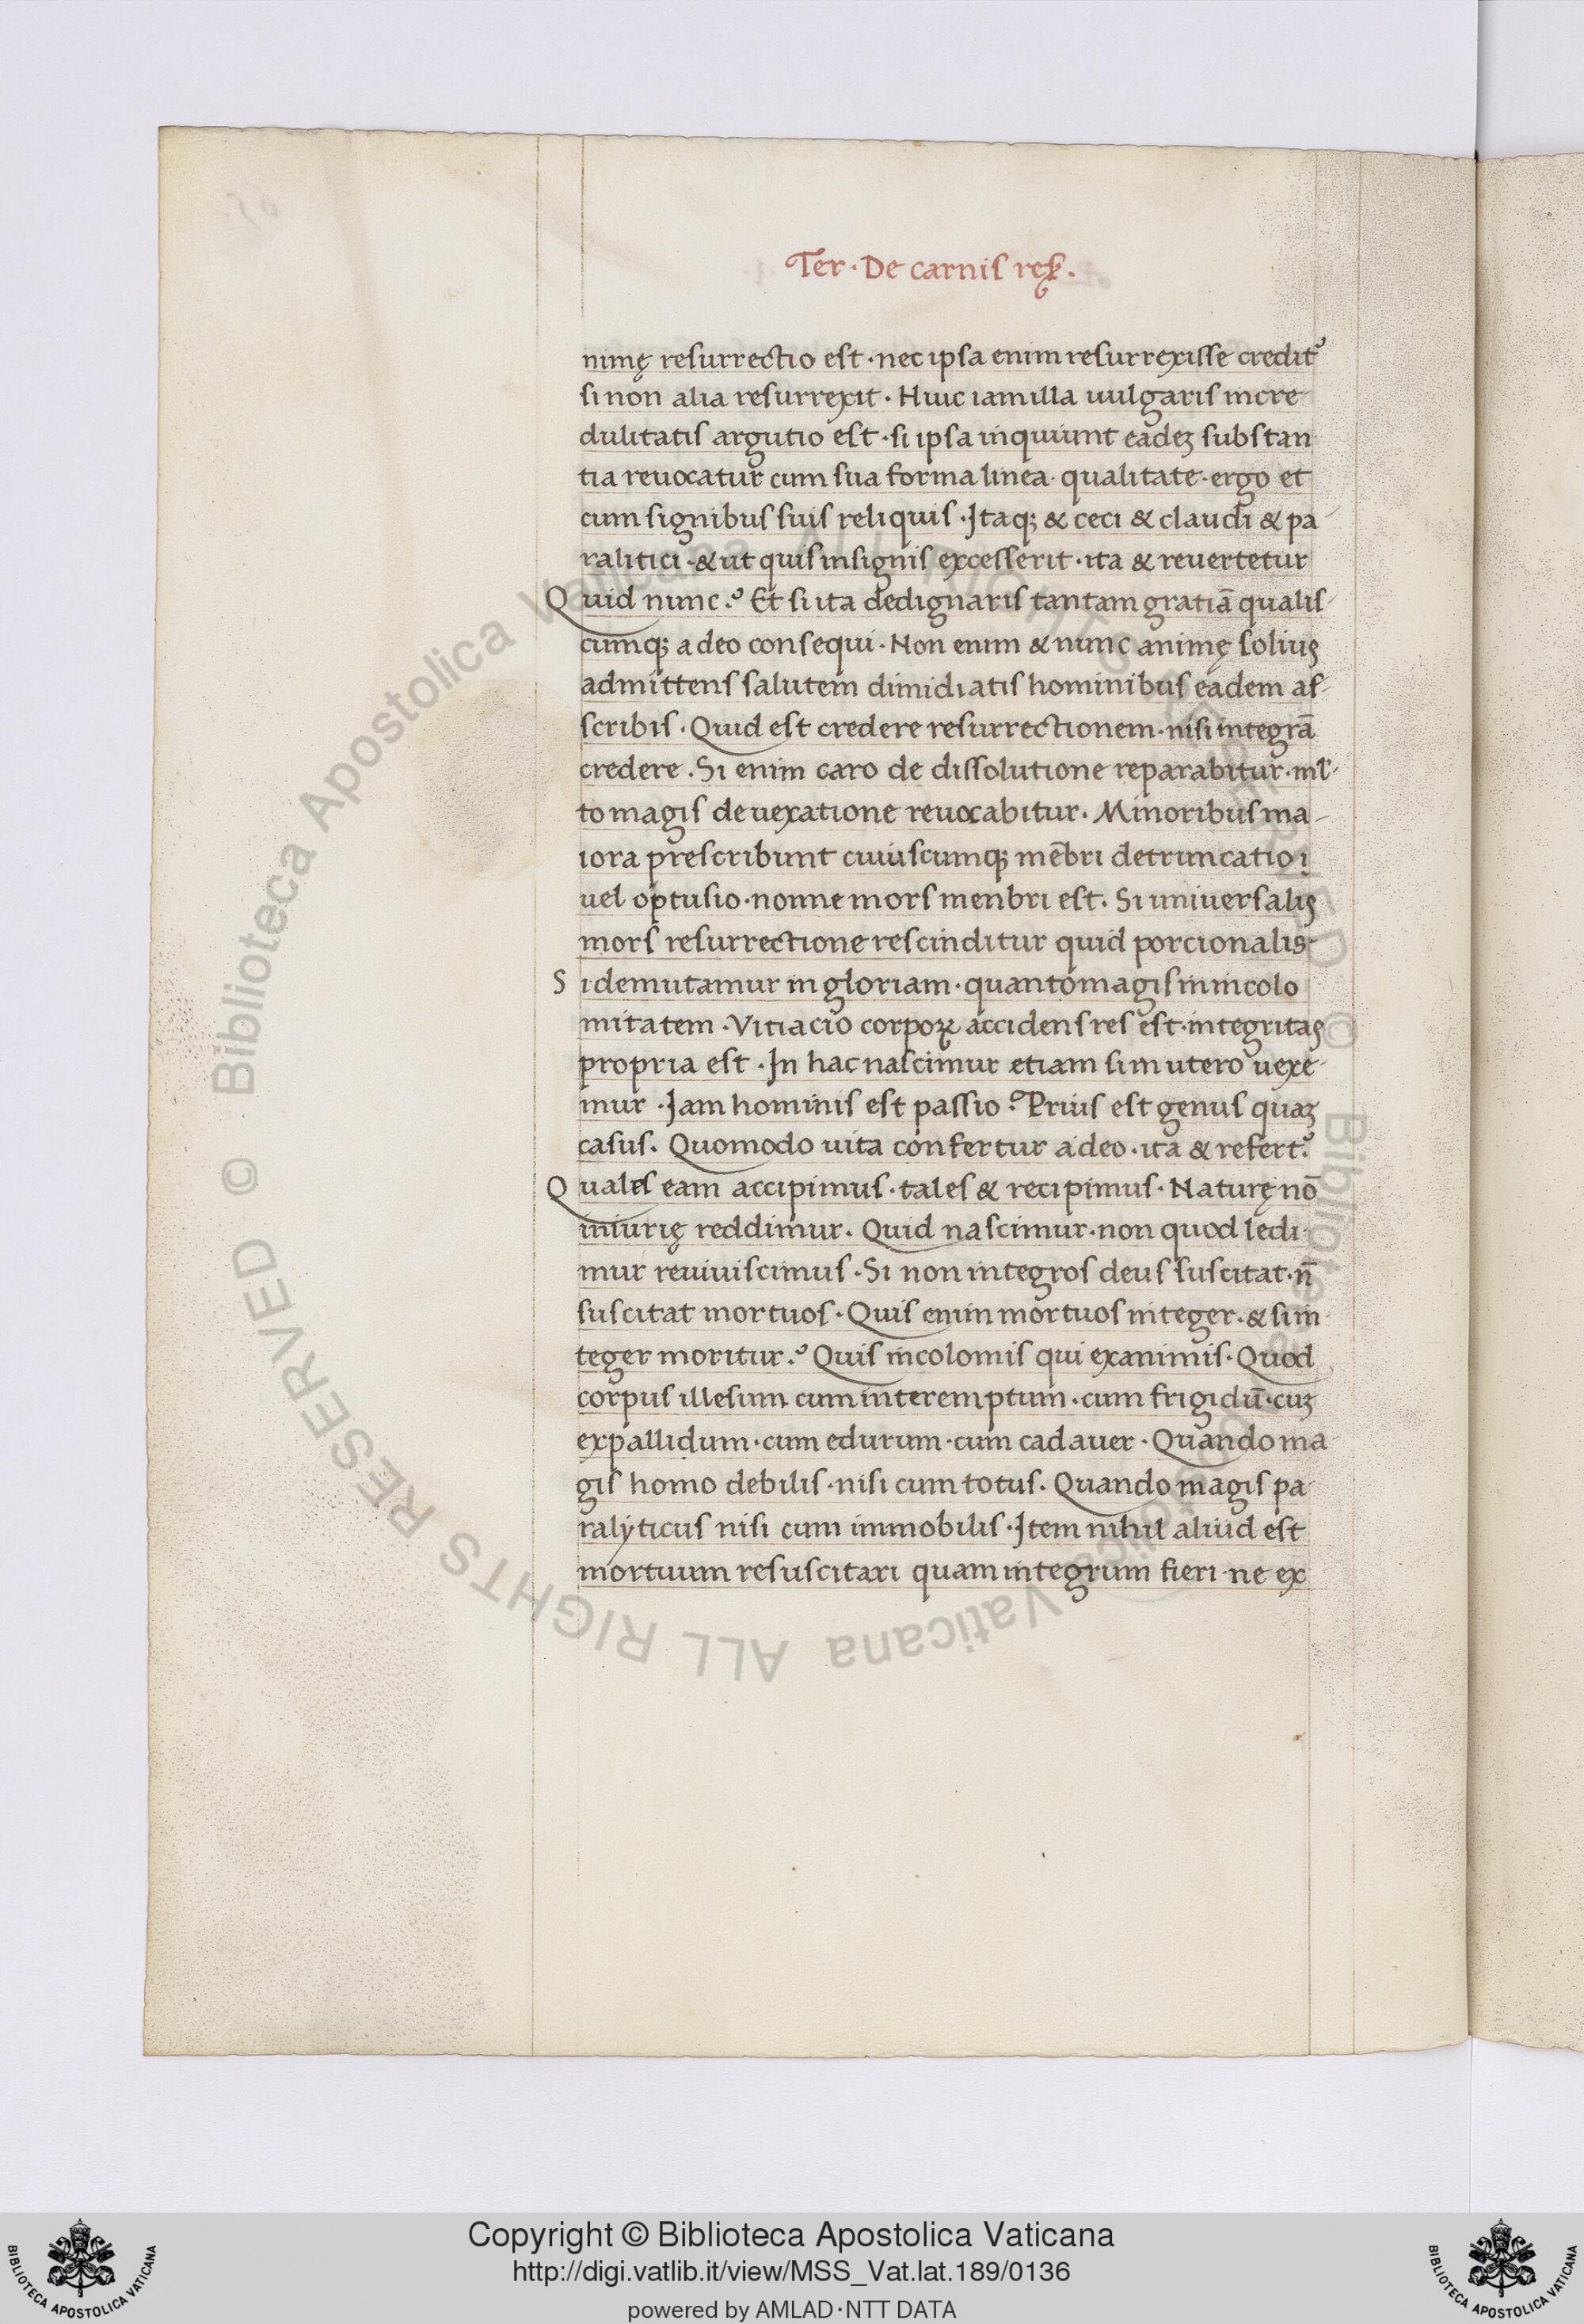 Ter · De carnis res̄.
nimę resurrectio est · nec ipsa enim resurrexisse credit᷒
si non alia resurrexit · Huic iam illa uulgaris incre
dulitatis argutio est · si ipsa inquiunt eadeꝫ substan
tia reuocatur cum sua forma linea · qualitate · ergo et
cum signibus suis reliquis · Itaqꝫ & ceci & claudi & pa-
ralitici · & ut quis insignis excesserit · ita & reuertetur
Quid nunc? Et si ita dedignaris tantam gratiā qualis-
cumqꝫ a deo consequi · Non enim & nunc animę solius
admittens salutem dimidiatis hominibus eadem as-
scribis · Quid est credere resurrectionem · nisi integrā
credere · Si enim caro de dissolutione reparabitur · ml'-
to magis de uexatione reuocabitur · Minoribus ma-
iora prescribunt cuiuscumqꝫ mēbri detruncatio
uel optusio · nonne mors menbri est. Si uniuersalis
mors resurrectione rescinditur quid porcionalis
Si demutamur in gloriam · quanto magis in incolo
mitatem · Vitiacio corpoꝝ accidens res est · integritas
propria est · In hac nascimur etiam si in utero uexe-
mur · Iam hominis est passio? Prius est genus quaꝫ
casus. Quomodo uita confertur a deo · ita & refert᷒.
Quales eam accipimus · tales & recipimus · Naturę nō
iniurię reddimur. Quid nascimur · non quod ledi-
mur reuiuiscimus · Si non integros deus suscitat · n̄
suscitat mortuos · Quis enim mortuos integer · & si in-
teger moritur? Quis incolomis qui exanimis · Quod
corpus illesum cum interemptum · cum frigidū · cuꝫ
expallidum · cum edurum · cum cadauer · Quando ma-
gis homo debilis · nisi cum totus. Quando magis pa-
ralyticus nisi cum immobilis · Item nihil aliud est
mortuum resuscitari quam integrum fieri · ne ex
© Biblioteca Apostolica Vaticana ALL RIGHTS RESERVED © Biblioteca Apostolica Vaticana ALL RIGHTS RESERVED
Copyright © Biblioteca Apostolica Vaticana
http://digi.vatlib.it/view/MSS_Vat.lat.189/0136
powered by AMLAD·NTT DATA
BIBLIOTECA APOSTOLICA VATICANA
BIBLIOTECA APOSTOLICA VATICANA